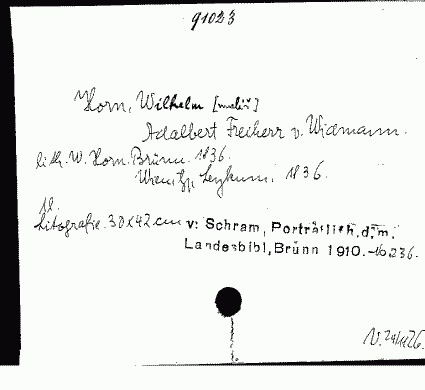 91023
Horn, Wilhelm [malíř]
Adalbert Freiherr v. Widmann.
lith. W. Horn. Brünn. 1836.
Wien, Typ. Leykum. 1836.
1l.
Litografie. 30x42 cm v: Schram, Porträtlith. d. m.
Landesbibl, Brünn 1910.-No 236.